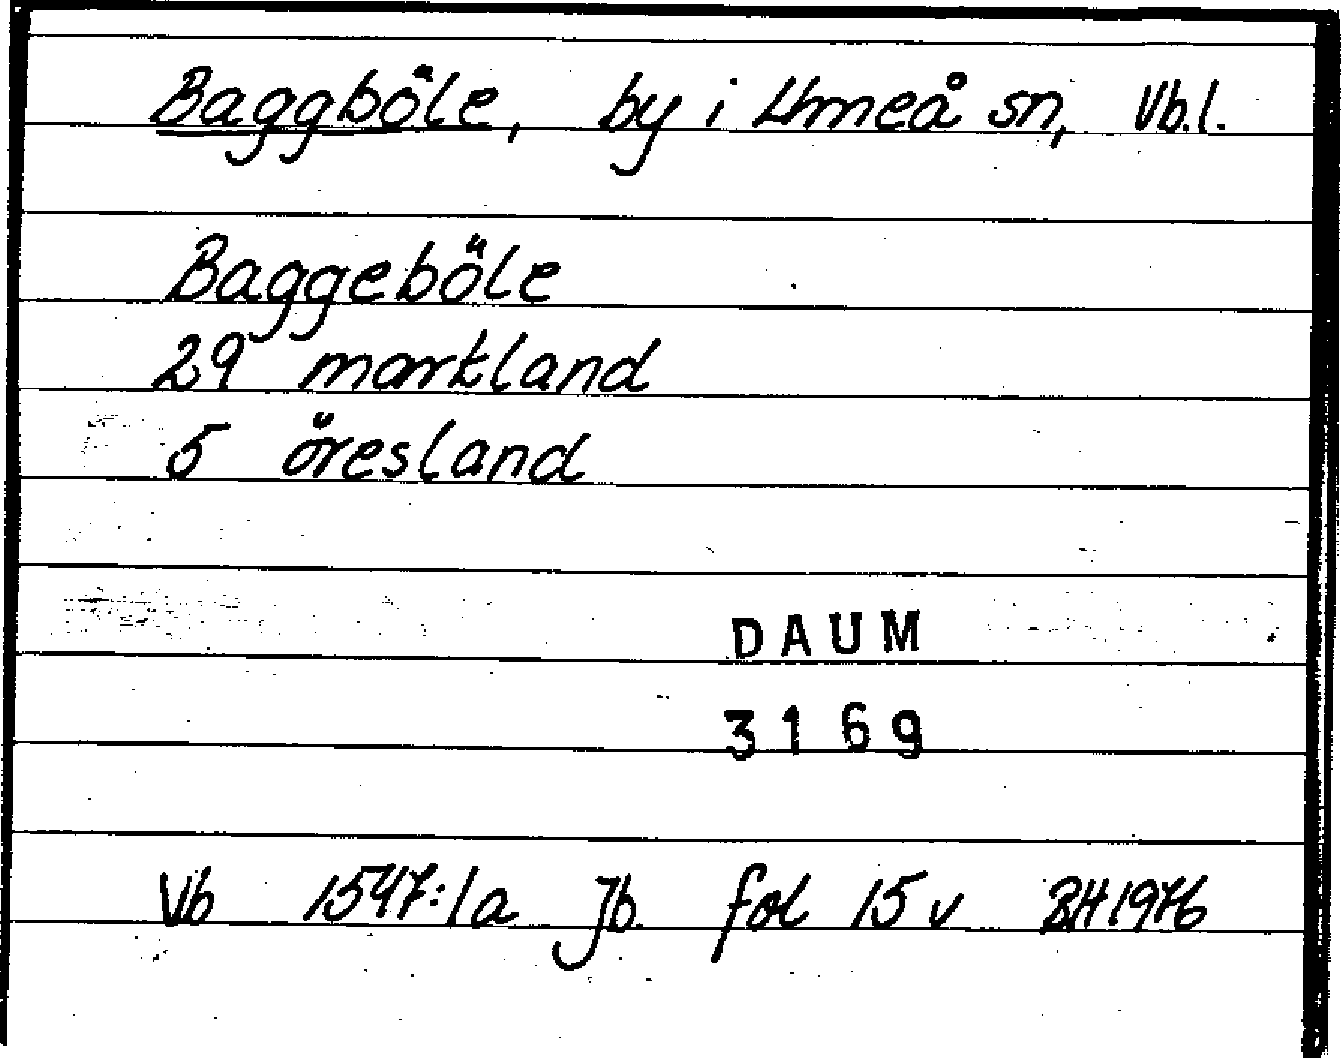 Baggböle, by i Umeå sn, Vb.l.
Baggeböle
29 markland
5 öresland
DAUM
3169
Vb 1547:1a Jb. fol 15 v BH 1976